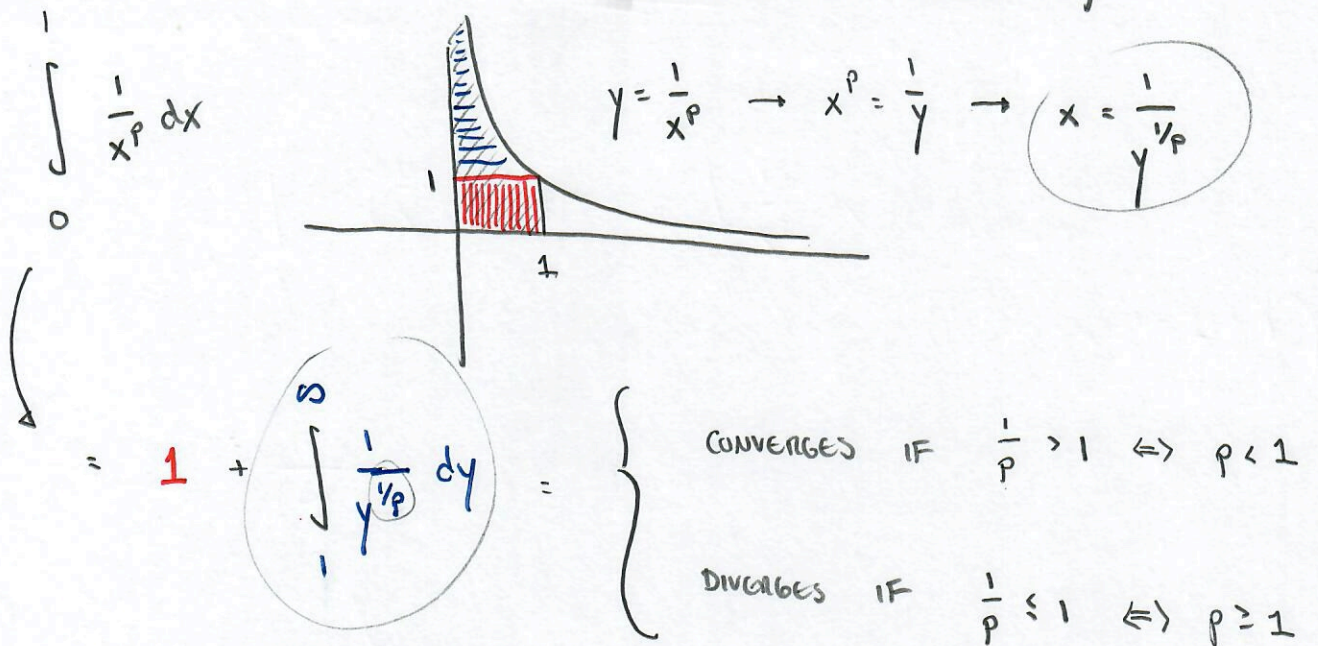 ∫₀¹ 1/x^p dx
y = 1/x^p → x^p = 1/y → x = 1/y^(1/p)
1
1
= 1 + ∫₁^∞ 1/y^(1/p) dy = {
CONVERGES IF 1/p > 1 <=> p < 1
DIVERGES IF 1/p ≤ 1 <=> p ≥ 1